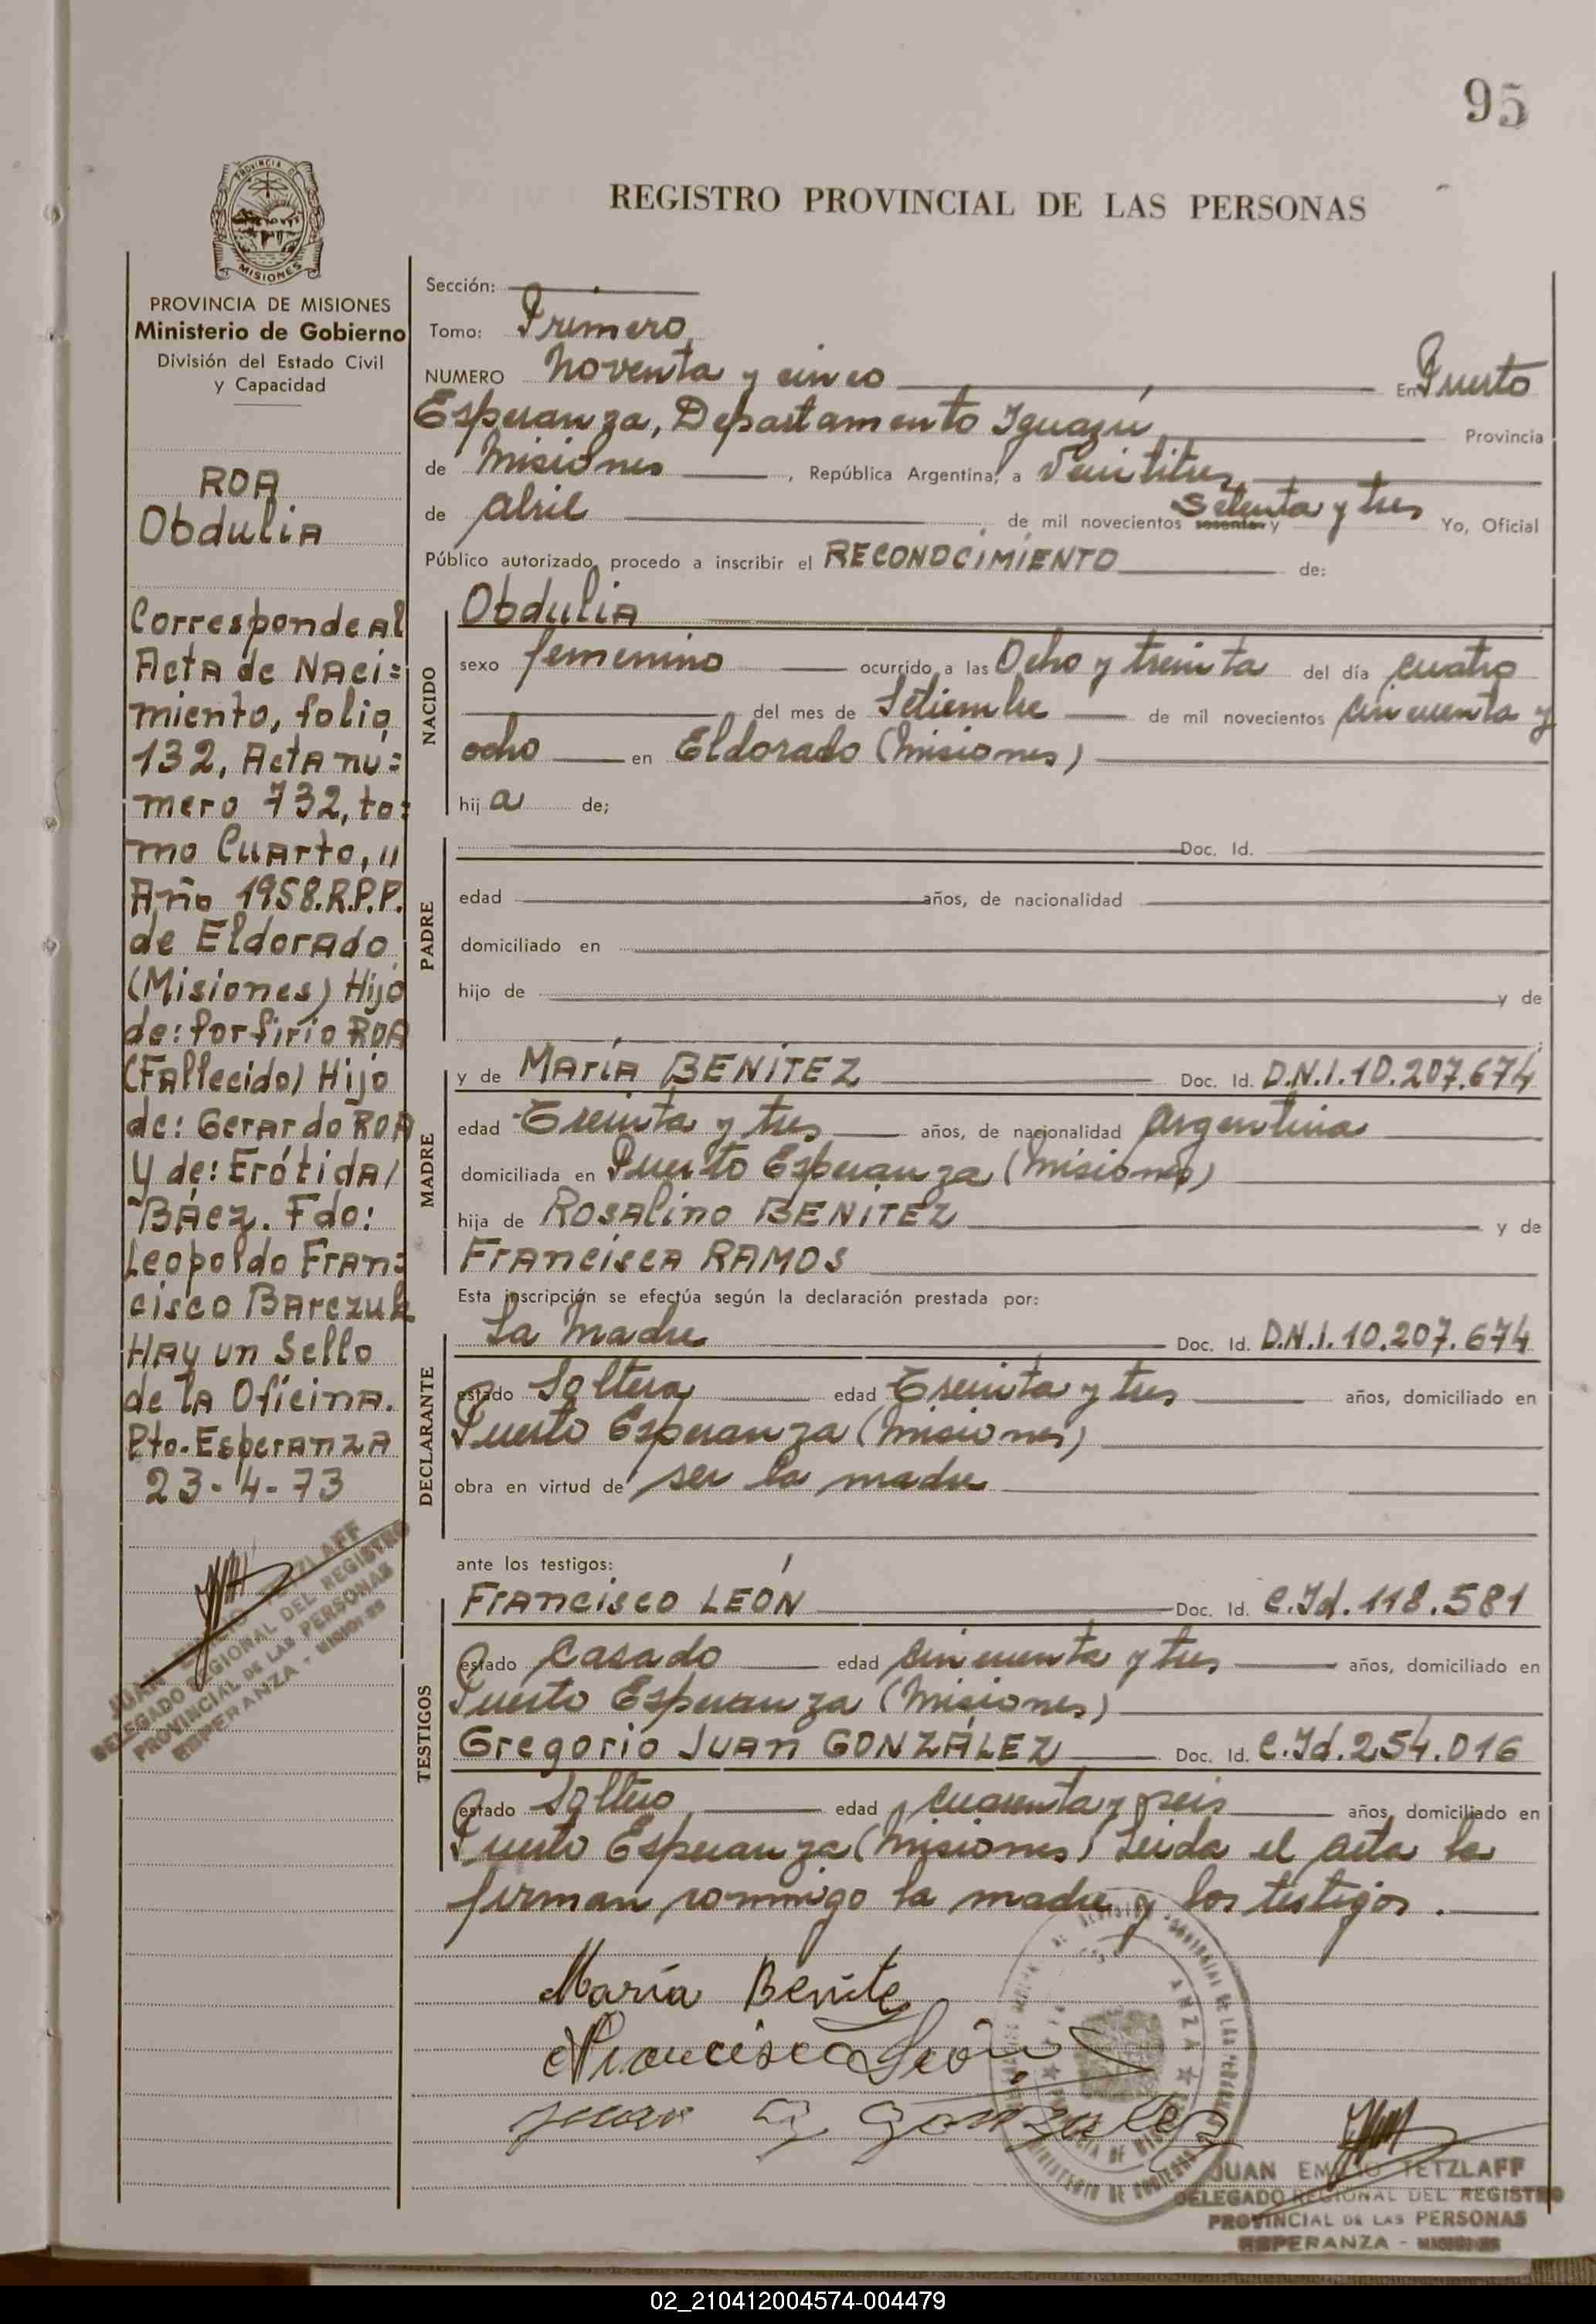 95
REGISTRO PROVINCIAL DE LAS PERSONAS
PROVINCIA
MISIONES
PROVINCIA DE MISIONES
Ministerio de Gobierno
División del Estado Civil
y Capacidad
ROA
Obdulia
Corresponde al
Acta de Naci=
miento, folio
132, Acta nú=
mero 732, to=
mo Cuarto, "
Año 1958. R.P.P.
de Eldorado
(Misiones) Hijo
de: Porfirio ROA
(Fallecido) Hijo
de: Gerardo ROA
y de: Erótida/
Báez. Fdo:
Leopoldo Fran=
cisco Barczuk
Hay un Sello
de la Oficina.
Pto. Esperanza
23-4-73
JUAN EMILIO TETZLAFF
DELEGADO REGIONAL DEL REGISTRO
PROVINCIAL DE LAS PERSONAS
ESPERANZA - MISIONES
Sección:
Tomo: Primero
NUMERO Noventa y cinco En Puerto
Esperanza, Departamento Iguazú Provincia
de Misiones, República Argentina, a Veintitres
de abril de mil novecientos sesenta y setenta y tres Yo, Oficial
Público autorizado, procedo a inscribir el RECONOCIMIENTO de:
NACIDO
Obdulia
sexo femenino ocurrido a las Ocho y treinta del día cuatro
del mes de Setiembre de mil novecientos cincuenta y
ocho en Eldorado (Misiones)
hij a de;
PADRE
Doc. Id.
edad años, de nacionalidad
domiciliado en
hijo de y de
MADRE
y de María BENÍTEZ Doc. Id. D.N.I. 10.207.674
edad Treinta y tres años, de nacionalidad argentina
domiciliada en Puerto Esperanza (Misiones)
hija de Rosalino BENÍTEZ y de
Francisca RAMOS
Esta inscripción se efectúa según la declaración prestada por:
DECLARANTE
La Madre Doc. Id. D.N.I. 10.207.674
estado Soltera edad Treinta y tres años, domiciliado en
Puerto Esperanza (Misiones)
obra en virtud de ser la madre
ante los testigos:
TESTIGOS
Francisco LEÓN Doc. Id. C.Id. 118.581
estado Casado edad cincuenta y tres años, domiciliado en
Puerto Esperanza (Misiones)
Gregorio Juan GONZÁLEZ Doc. Id. C.Id. 254.016
estado Soltero edad cuarenta y seis años, domiciliado en
Puerto Esperanza (Misiones) Leida el acta la
firman conmigo la madre y los testigos.
María Benite
Francisco León
Juan G Gonzalez
JUAN EMILIO TETZLAFF
DELEGADO REGIONAL DEL REGISTRO
PROVINCIAL DE LAS PERSONAS
ESPERANZA - MISIONES
02_210412004574-004479